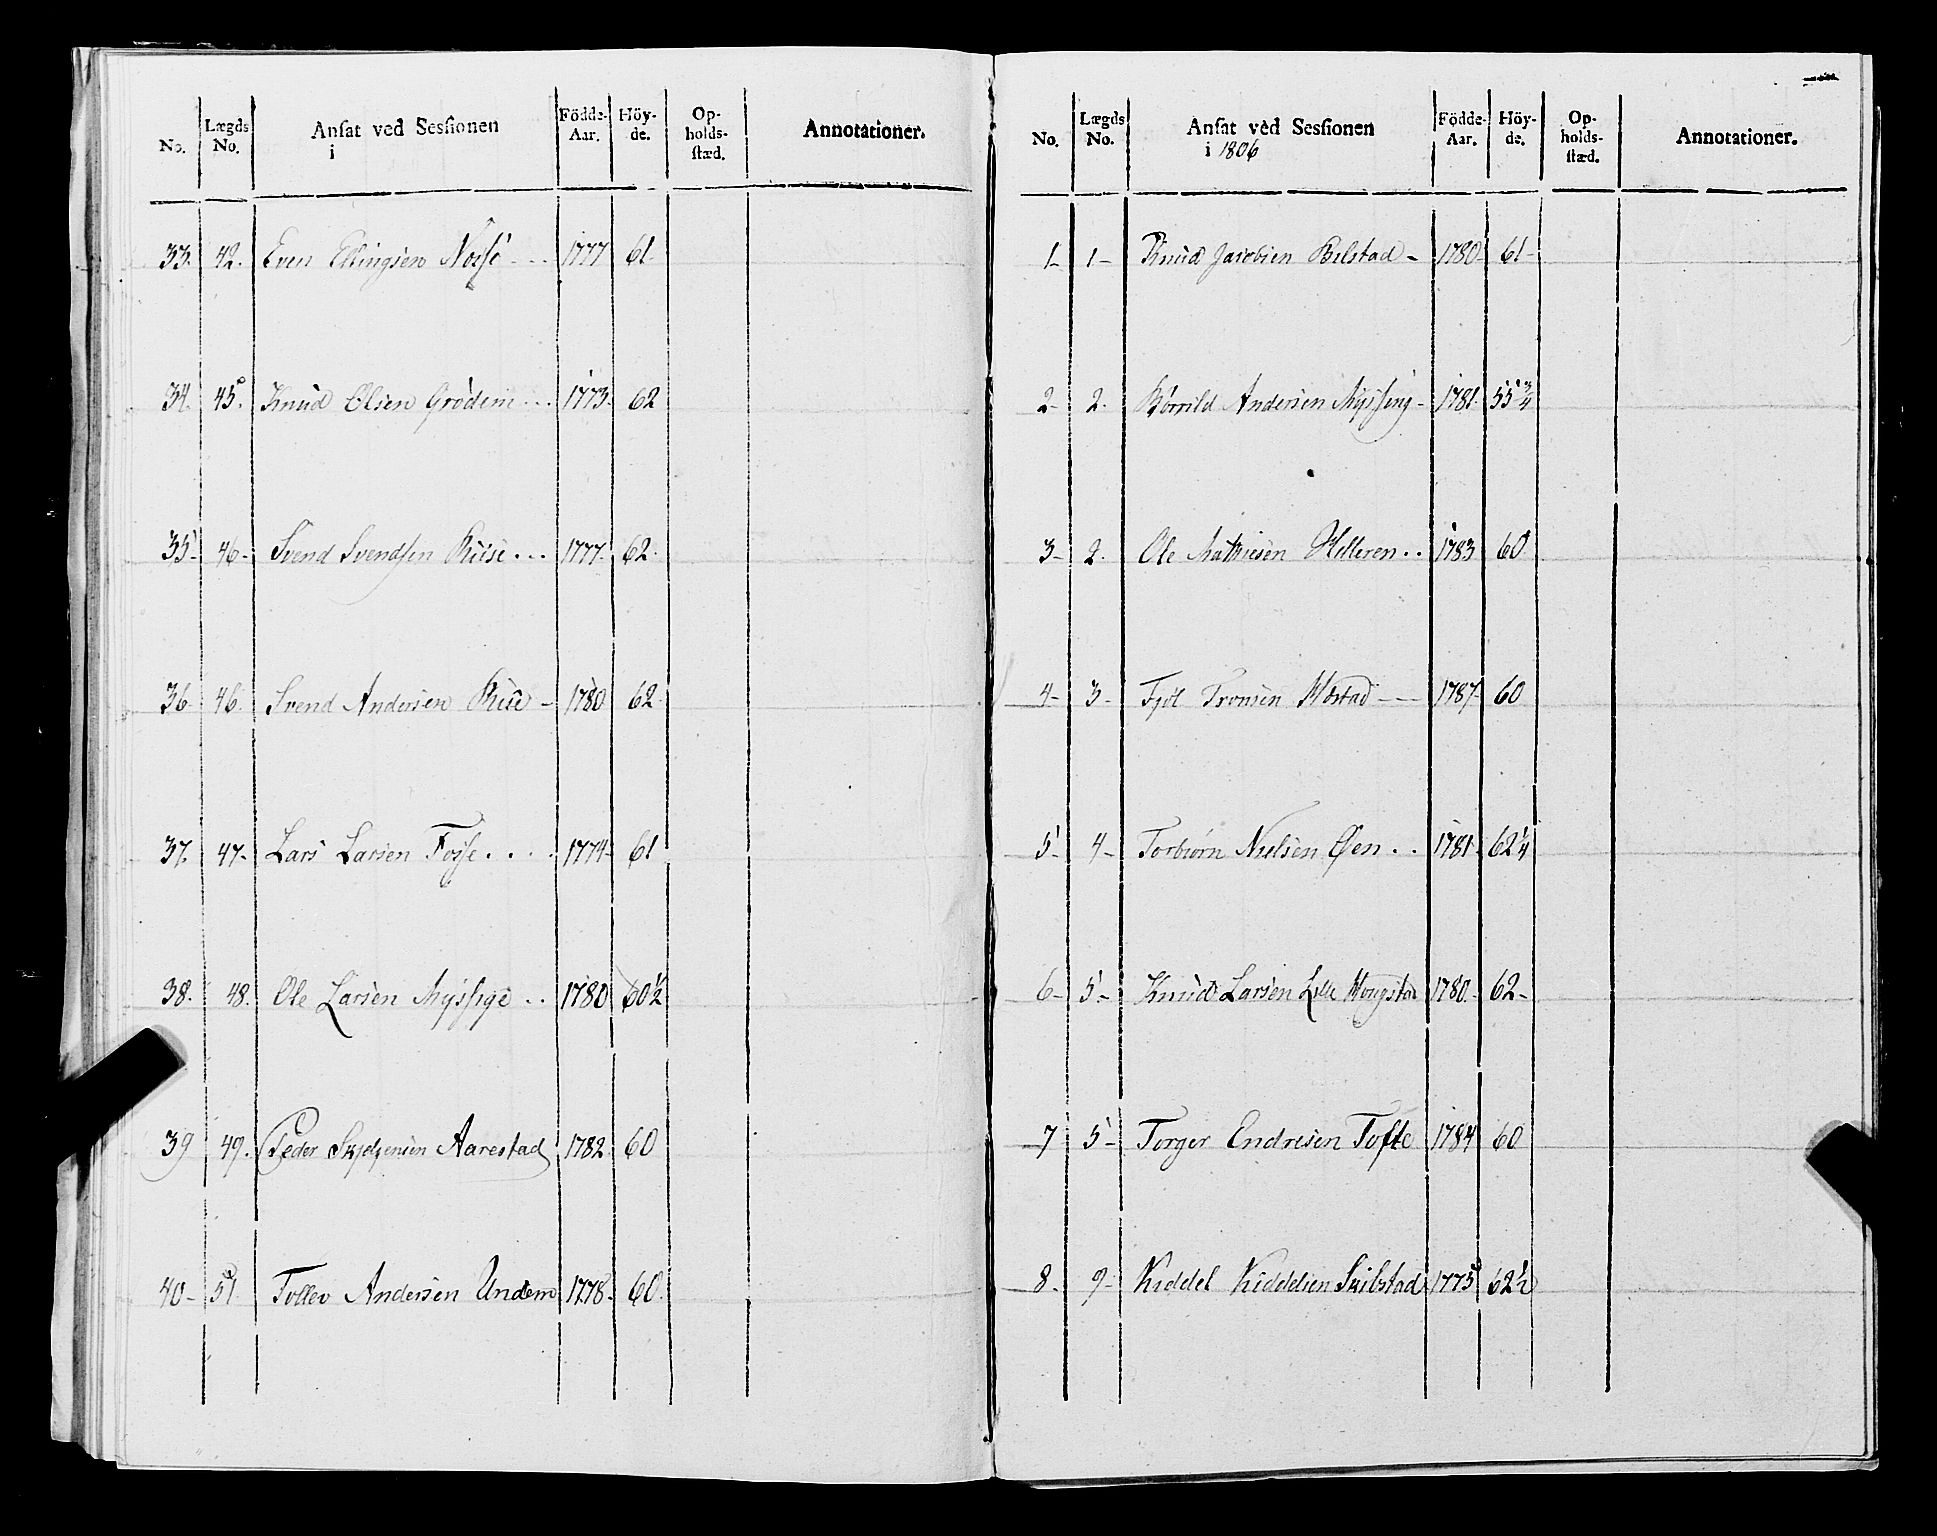 No. Lægds No. Ansat ved Sessionen i Födde-Aar. Höy-de. Op-holds-stæd. Annotationer.
33. 42. Even Ellingsen 1777 61
34. 45. Knud Olsen Grödem 1773 62
35 46 Svend Svendsen 1777 62
36 46 Svend Andersen 1780 62
37. 47 Lars Larsen Fosse 1774 61
38. 48. Ole Larsen 1780 60 1/2
39 49. Peder Aarestad 1782 60
40 51 Tollev Andersen Undem 1778 60
No. Lægds No. Ansat ved Sessionen i 1806 Födde-Aar. Höy-de. Op-holds-stæd. Annotationer.
1 1 Knud Jacobsen 1780 61
2 2. Andersen 1781 55 3/4
3 2. Ole Mathiesen Helleren 1783 60
4 3 Tronsen 1787 60
5 4 Torbiørn Nielsen Øen 1781 62 1/4
6 5 Knud Larsen Lille 1780 62
7 5 Torger Endresen Tofte 1784 60
8. 9 Kiddel Skibstad 1775 62 1/2